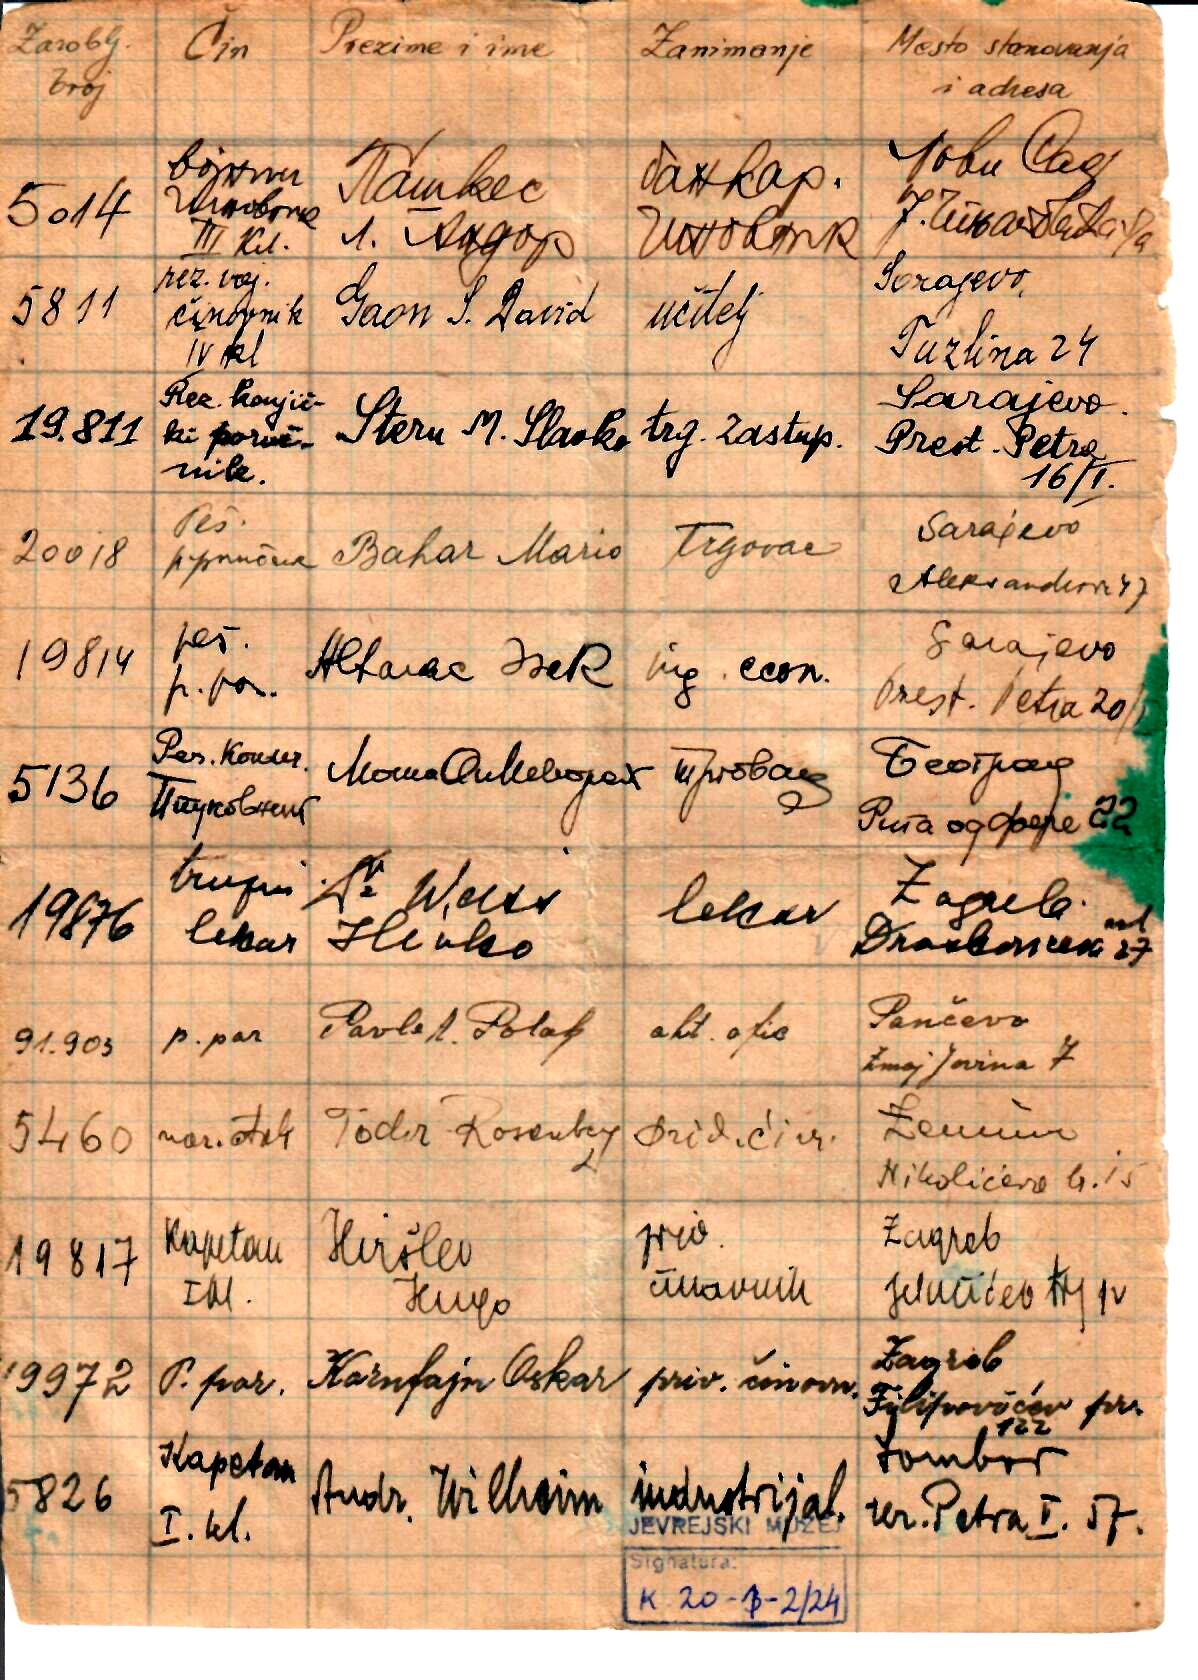 Zaroblj. broj Čin Prezime i ime Zanimanje Mesto stanovanja i adresa
5014 војни чиновник III кл. банкар. чиновник Нови Сад
5811 rez. voj. činovnik IV kl Gaon S. David učitelj Sarajevo, Tuzlina 24
19.811 Rez. konjič- ki poruč- nik. Stern M. Slavko trg. zastup. Sarajevo. Prest. Petra 16/I.
20018 Peš. p.poručnik Bahar Mario Trgovac Sarajevo Aleksandrova 47
19814 peš. p. por. Altarac Isak ing. econ. Sarajevo Prest. Petra 20/
5136 Рез. Коњич. Ппуковник Моша Меворах трговац Београд Рига од Фере 22
19876 trupni lekar Dr Weiss Hinko lekar Zagreb Draskoviceva ul 27
91.903 p. por Pavle A. Polak akt. ofic Pančevo Zmaj Jovina 7
5460 Todor Rosenberg Zemun Nikolićeva b. 15
19817 Kapetan I kl. Hiršler Hugo priv. činovnik Zagreb Jelačićev trg IV
19972 P. por. Kornfajn Oskar priv. činovn. Zagreb Filipovićev 122
5826 Kapetan I. kl. Andr. Wilheim industrijal. Sombor ver. Petra I. 57.
JEVREJSKI MUZEJ
Signatura:
K 20-3-2/24